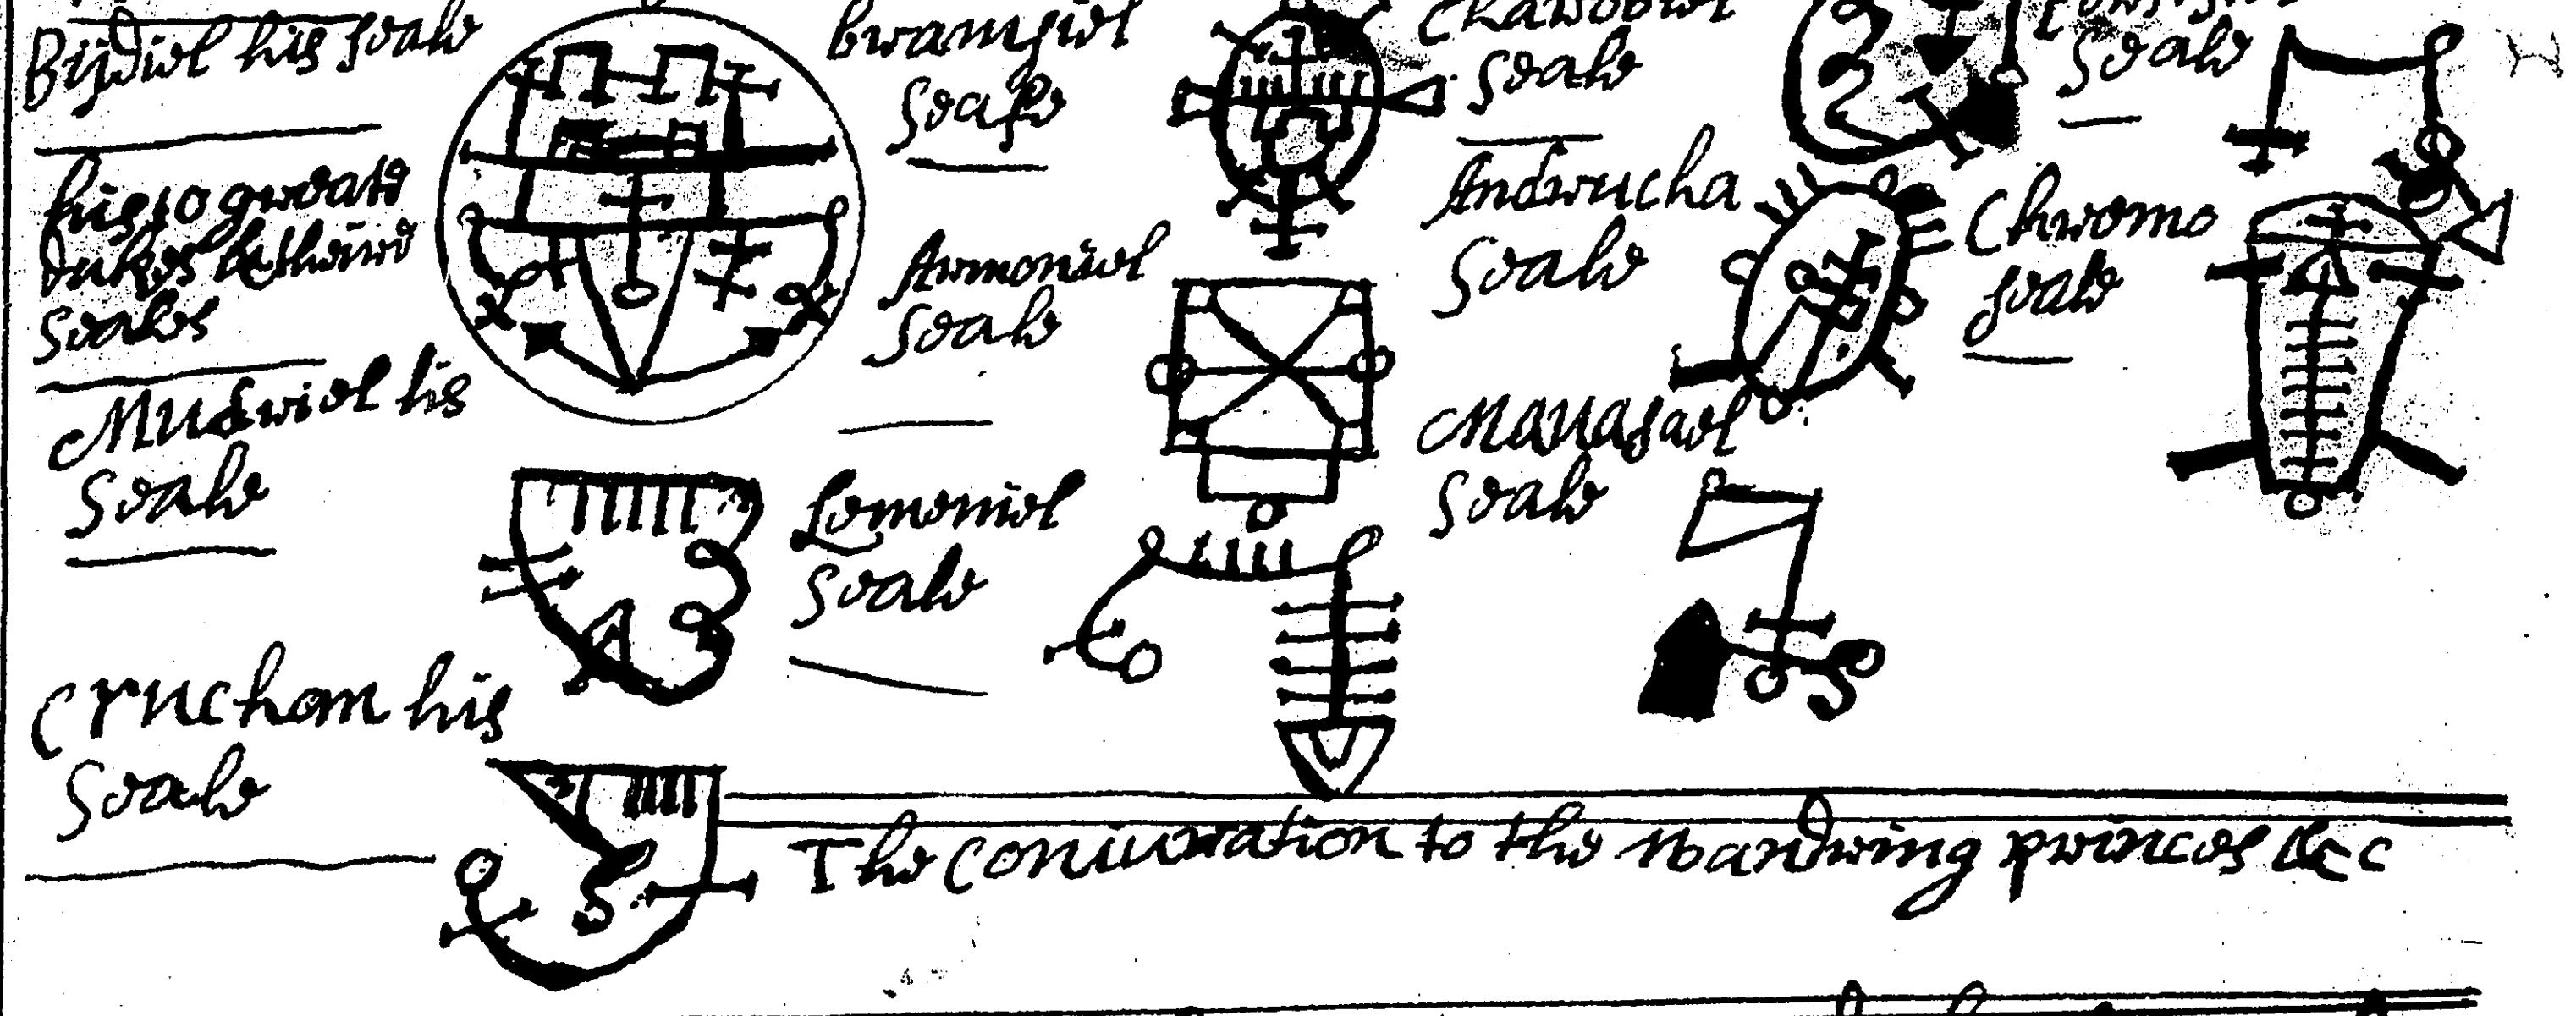 Bijdiel his seale
his 10 greate
dukes & theire
seales
Mudriel his
Seale
Cruchan his
Seale
bramsiel
Seale
Armoniel
Seale
Lemeniel
Seale
Seale
Andrucha
Seale
Manasael
Seale
Seale
Chromo
seale
The Coniuration to the wandring princes &c